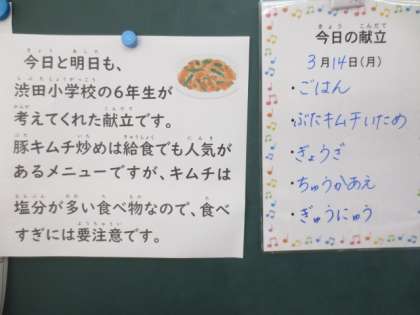 今日と明日も、
渋田小学校の6年生が
考えてくれた献立です。
豚キムチ炒めは給食でも人気が
あるメニューですが、キムチは
塩分が多い食べ物なので、食べ
すぎには要注意です。
今日の献立
3月14日(月)
・ごはん
・ぶたキムチいため
・ぎょうざ
・ちゅうかあえ
・ぎゅうにゅう